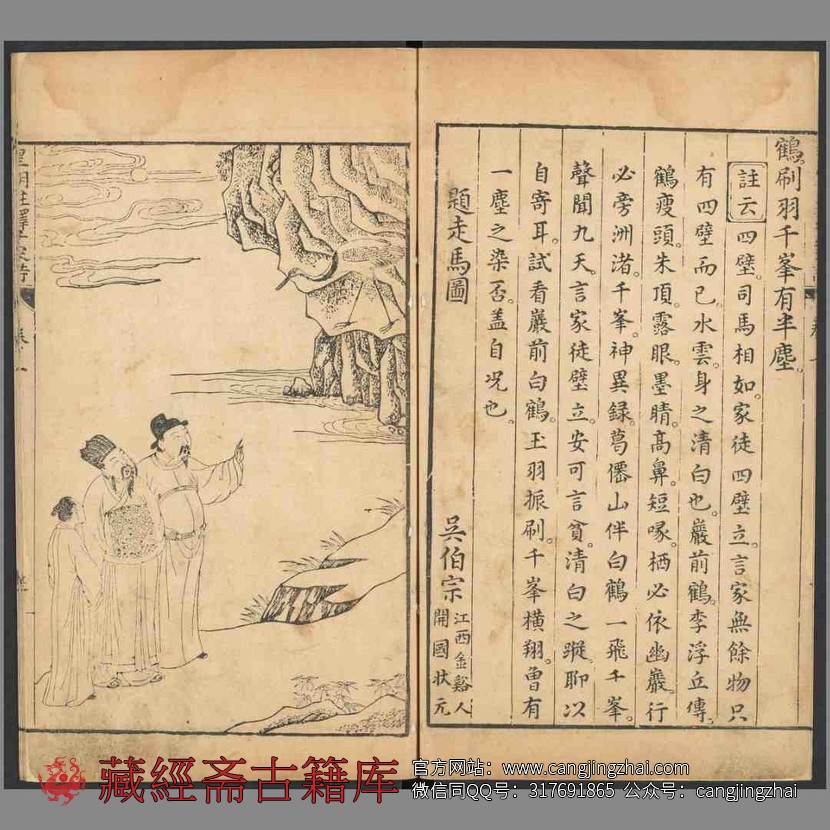 鶴刷羽千峯有半塵。
註云四壁。司馬相如。家徒四壁立。言家無餘物只
有四壁而已。水雲。身之清白也。巖前鶴。李浮丘傳。
鶴瘦頭。朱頂。露眼。墨睛。高鼻。短喙。栖必依幽巖。行
必旁洲渚。千峯。神異録。葛僊山伴白鶴一飛千峯。
聲聞九天。言家徒壁立。安可言貧。清白之蹤。聊以
自寄耳。試看巖前白鶴。玉羽振刷。千峯橫翔。曾有
一塵之染否。蓋自况也。
題走馬圖
吳伯宗 江西金谿人
開國狀元
皇明註釋
卷一
藏經斋古籍库
官方网站：www.cangjingzhai.com
微信同QQ号：317691865 公众号：cangjingzhai